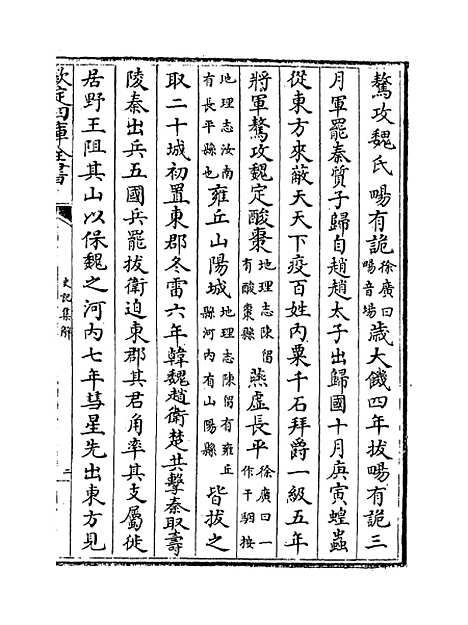 驁攻魏氏暘有詭徐廣曰暘音場歲大饑四年拔暘有詭三
月軍罷秦質子歸自趙趙太子出歸國十月庚寅蝗蟲
從東方來蔽天天下疫百姓内粟千石拜爵一級五年
將軍驁攻魏定酸棗地理志陳留有酸棗縣燕虚長平徐廣曰一作千駰按
地理志汝南有長平縣也雍丘山陽城地理志陳留有雍丘縣河内有山陽縣皆拔之
取二十城初置東郡冬雷六年韓魏趙衛楚共擊秦取壽
陵秦出兵五國兵罷拔衛迫東郡其君角率其支屬徙
居野王阻其山以保魏之河内七年彗星先出東方見
欽定四庫全書
史記集解
二